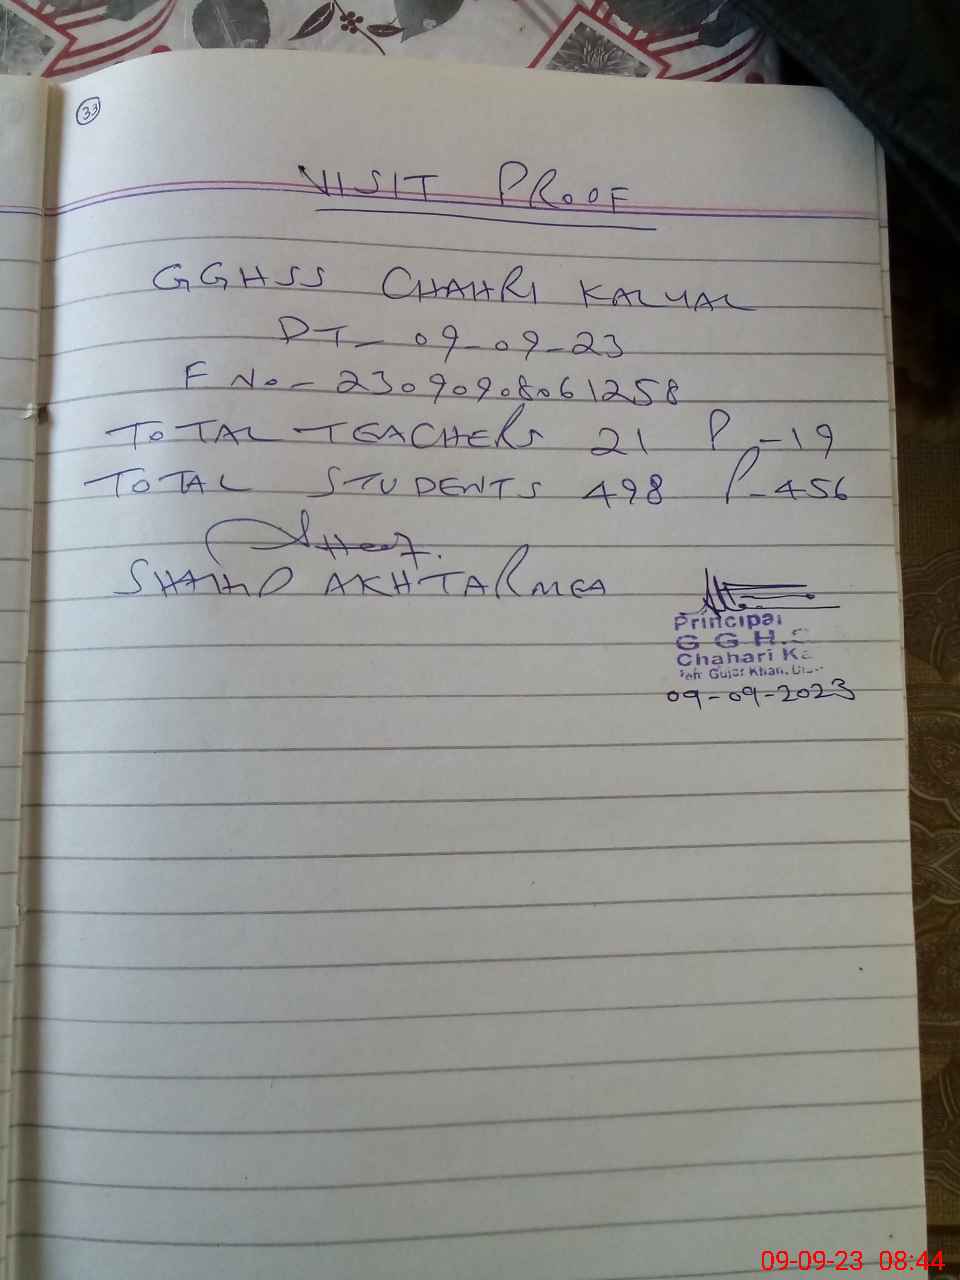 33
VISIT PROOF
GGHSS CHAHRI KALYAL
DT- 09-09-23
F No- 23090908061258
TOTAL TEACHERS 21 P-19
TOTAL STUDENTS 498 P-456
SHAHID AKHTAR MEA
Principal
G G H.S
Chahari Ka
Teh: Gujar Khan.
09-09-2023
09-09-23 08:44